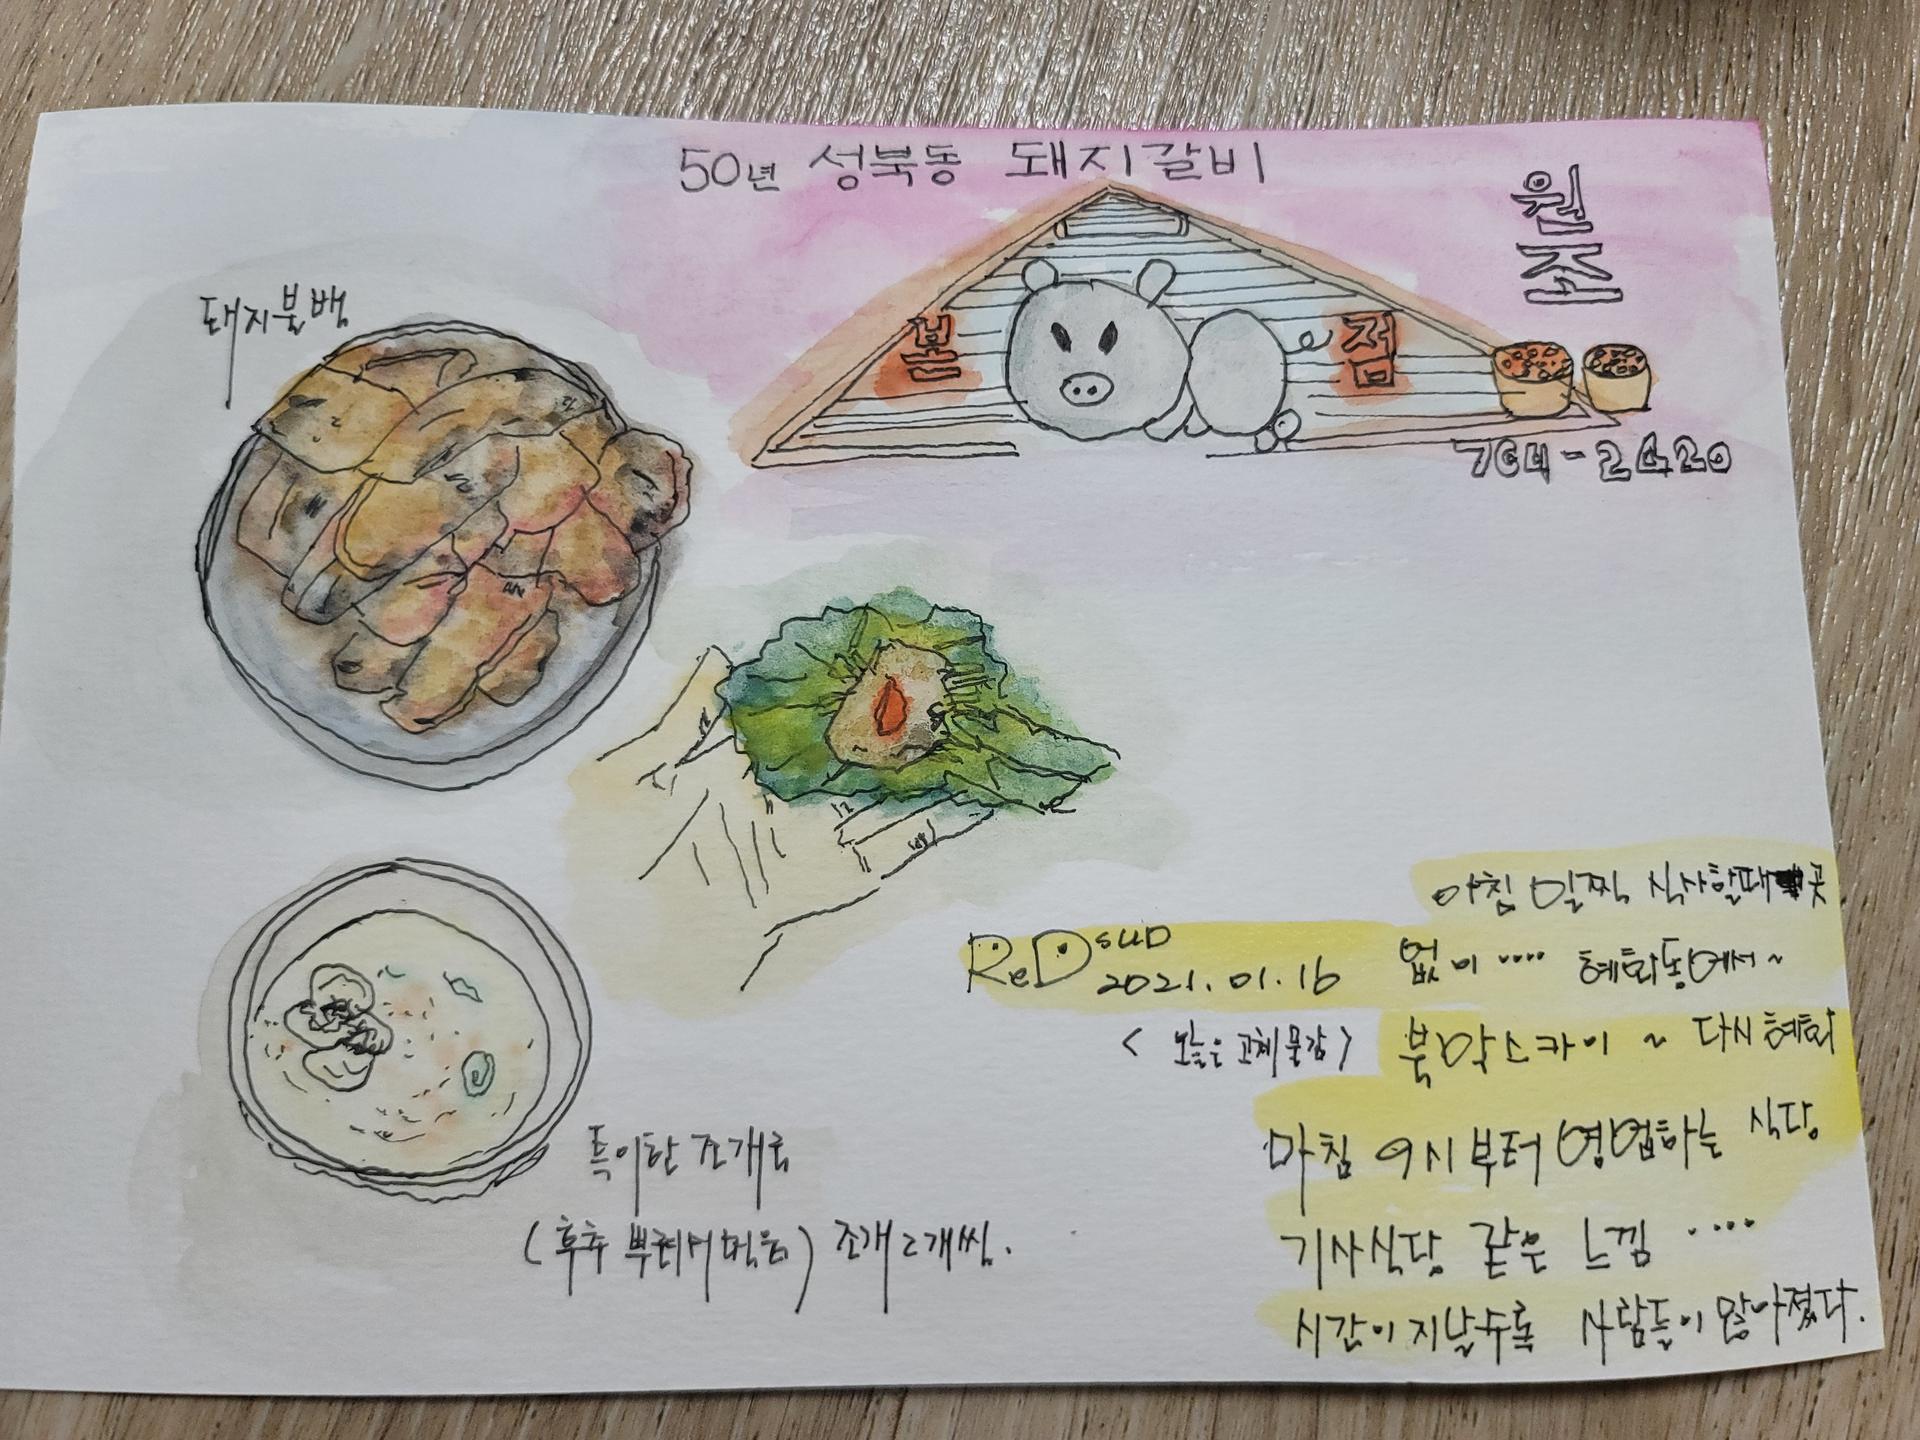 50년 성북동 돼지갈비
원조
돼지불백
본 점
764-2420
아침 일찍 식사할때 곳
없이···· 혜화동에서~
ReD sun
2021.01.16
<오늘은 고체물감>
북악스카이~ 다시혜화
마침 9시부터 영업하는 식당
기사식당 같은 느낌 ····
시간이 지날수록 사람들이 많아졌다.
특이한 조개로
(후추 뿌려서 먹음) 조개 2개씩.